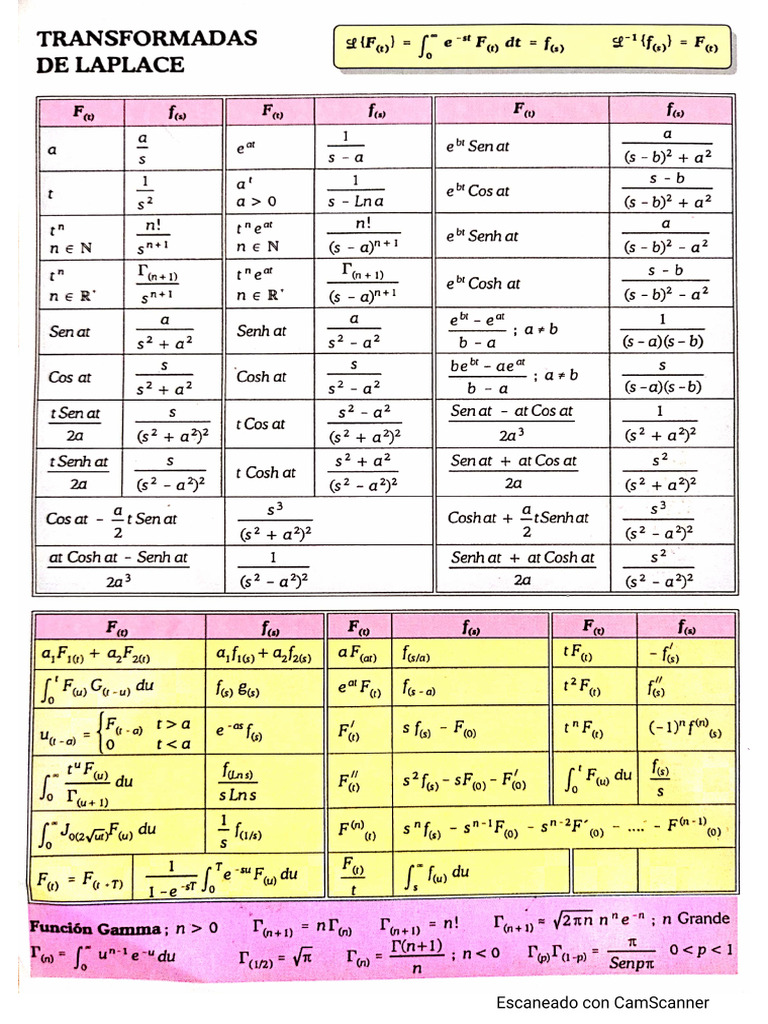 TRANSFORMADAS
DE LAPLACE
ℒ{F(t)} = ∫₀^∞ e^(-st) F(t) dt = f(s)   ℒ⁻¹{f(s)} = F(t)
F(t) | f(s) | F(t) | f(s) | F(t) | f(s)
a | a/s | e^(at) | 1/(s - a) | e^(bt) Sen at | a/((s - b)² + a²)
t | 1/s² | a^t a > 0 | 1/(s - Ln a) | e^(bt) Cos at | (s - b)/((s - b)² + a²)
t^n n ∈ ℕ | n!/s^(n+1) | t^n e^(at) n ∈ ℕ | n!/(s - a)^(n+1) | e^(bt) Senh at | a/((s - b)² - a²)
t^n n ∈ ℝ⁺ | Γ(n+1)/s^(n+1) | t^n e^(at) n ∈ ℝ⁺ | Γ(n+1)/(s - a)^(n+1) | e^(bt) Cosh at | (s - b)/((s - b)² - a²)
Sen at | a/(s² + a²) | Senh at | a/(s² - a²) | (e^(bt) - e^(at))/(b - a) ; a ≠ b | 1/((s - a)(s - b))
Cos at | s/(s² + a²) | Cosh at | s/(s² - a²) | (be^(bt) - ae^(at))/(b - a) ; a ≠ b | s/((s - a)(s - b))
t Sen at/2a | s/(s² + a²)² | t Cos at | (s² - a²)/(s² + a²)² | (Sen at - at Cos at)/2a³ | 1/(s² + a²)²
t Senh at/2a | s/(s² - a²)² | t Cosh at | (s² + a²)/(s² - a²)² | (Sen at + at Cos at)/2a | s²/(s² + a²)²
Cos at - (a/2) t Sen at | s³/(s² + a²)² | Cosh at + (a/2) t Senh at | s³/(s² - a²)²
(at Cosh at - Senh at)/2a³ | 1/(s² - a²)² | (Senh at + at Cosh at)/2a | s²/(s² - a²)²
F(t) | f(s) | F(t) | f(s) | F(t) | f(s)
a₁F₁(t) + a₂F₂(t) | a₁f₁(s) + a₂f₂(s) | a F(at) | f(s/a) | tF(t) | - f′(s)
∫₀^t F(u) G(t - u) du | f(s) g(s) | e^(at) F(t) | f(s - a) | t² F(t) | f″(s)
u(t - a) = { F(t - a) t > a ; 0 t < a | e^(-as) f(s) | F′(t) | s f(s) - F(0) | t^n F(t) | (-1)^n f^(n)(s)
∫₀^∞ t^u F(u)/Γ(u + 1) du | f(Ln s)/(s Ln s) | F″(t) | s² f(s) - sF(0) - F′(0) | ∫₀^t F(u) du | f(s)/s
∫₀^∞ J₀(2√ut) F(u) du | (1/s) f(1/s) | F^(n)(t) | s^n f(s) - s^(n-1) F(0) - s^(n-2) F´(0) - .... - F^(n-1)(0)
F(t) = F(t + T) | 1/(1 - e^(-sT)) ∫₀^T e^(-su) F(u) du | F(t)/t | ∫ₛ^∞ f(u) du
Función Gamma ; n > 0   Γ(n+1) = nΓ(n)   Γ(n+1) = n!   Γ(n+1) ≈ √(2πn) n^n e^(-n) ; n Grande
Γ(n) = ∫₀^∞ u^(n-1) e^(-u) du   Γ(1/2) = √π   Γ(n) = Γ(n+1)/n ; n < 0   Γ(p)Γ(1-p) = π/Senpπ   0 < p < 1
Escaneado con CamScanner